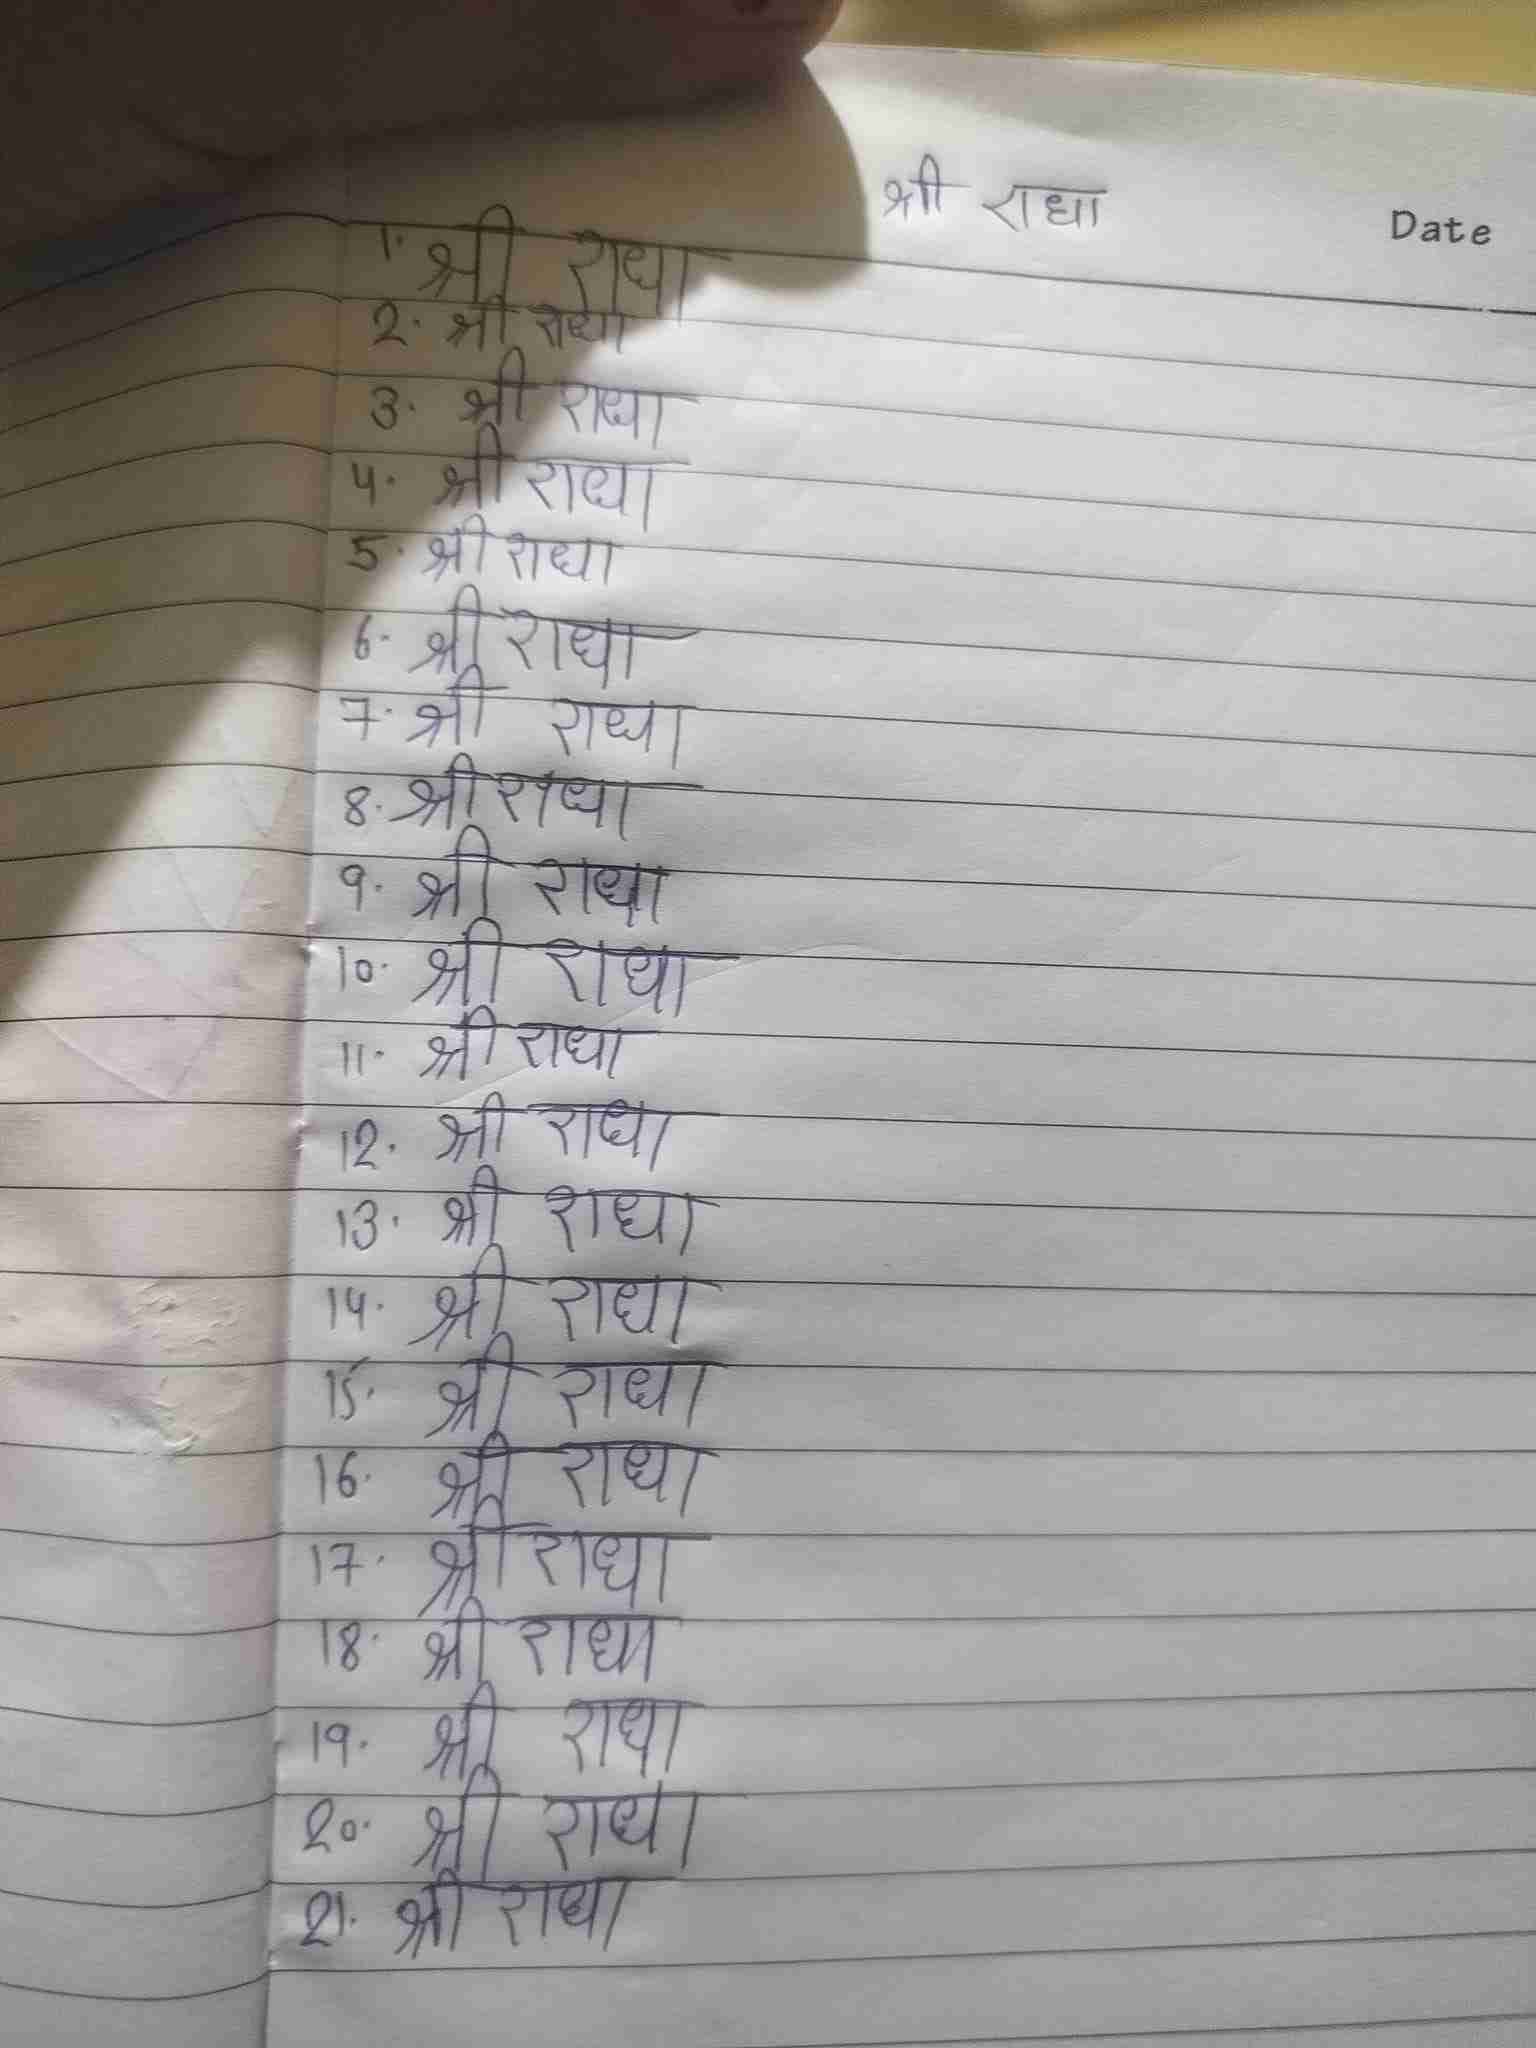 श्री राधा
Date
1. श्री राधा
2. श्री राधा
3. श्री राधा
4. श्री राधा
5. श्री राधा
6. श्री राधा
7. श्री राधा
8. श्री राधा
9. श्री राधा
10. श्री राधा
11. श्री राधा
12. श्री राधा
13. श्री राधा
14. श्री राधा
15. श्री राधा
16. श्री राधा
17. श्री राधा
18. श्री राधा
19. श्री राधा
20. श्री राधा
21. श्री राधा